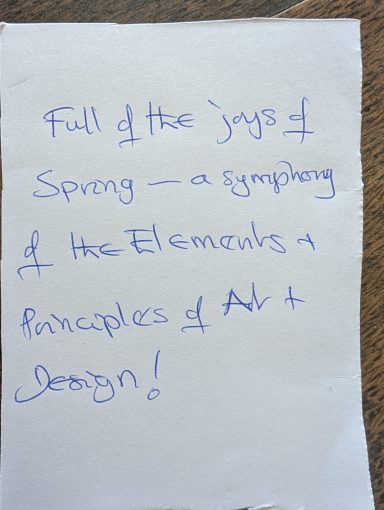 Full of the joys of
Spring – a symphony
of the Elements +
Principles of Art +
Design!